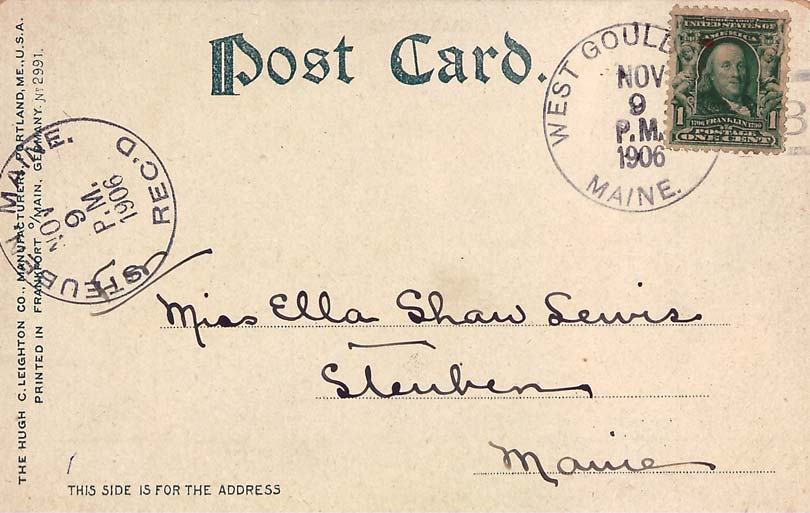 Post Card.
WEST GOULD
NOV
9
P.M.
1906
MAINE.
UNITED STATES OF
AMERICA
1 1
1706 FRANKLIN 1790
POSTAGE
ONE CENT
STEUBEN, MAINE.
NOV
9
P.M.
1906
REC'D
THE HUGH C. LEIGHTON CO., MANUFACTURERS, PORTLAND, ME., U.S.A.
PRINTED IN FRANKFORT o/MAIN, GERMANY. No 2991.
Miss Ella Shaw Lewis
Steuben
Maine
THIS SIDE IS FOR THE ADDRESS